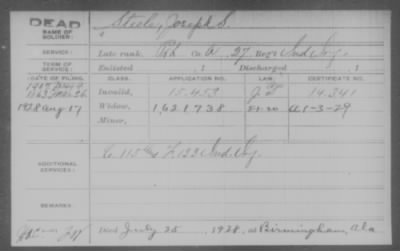 DEAD
NAME OF SOLDIER: Steele, Joseph S.
SERVICE: Late rank, Pvt Co A, 27 Reg't Ind Inf.
TERM OF SERVICE: Enlisted , 1 Discharged , 1
DATE OF FILING. CLASS. APPLICATION NO. LAW. CERTIFICATE NO.
1863 Invalid, 15.453 14.341
1928 Aug 17 Widow, 1,621,738 A1-3-29
Minor,
ADDITIONAL SERVICES: C. 115 & F 133 Ind Inf.
REMARKS:
Died July 25 1928, at Birmingham, Ala